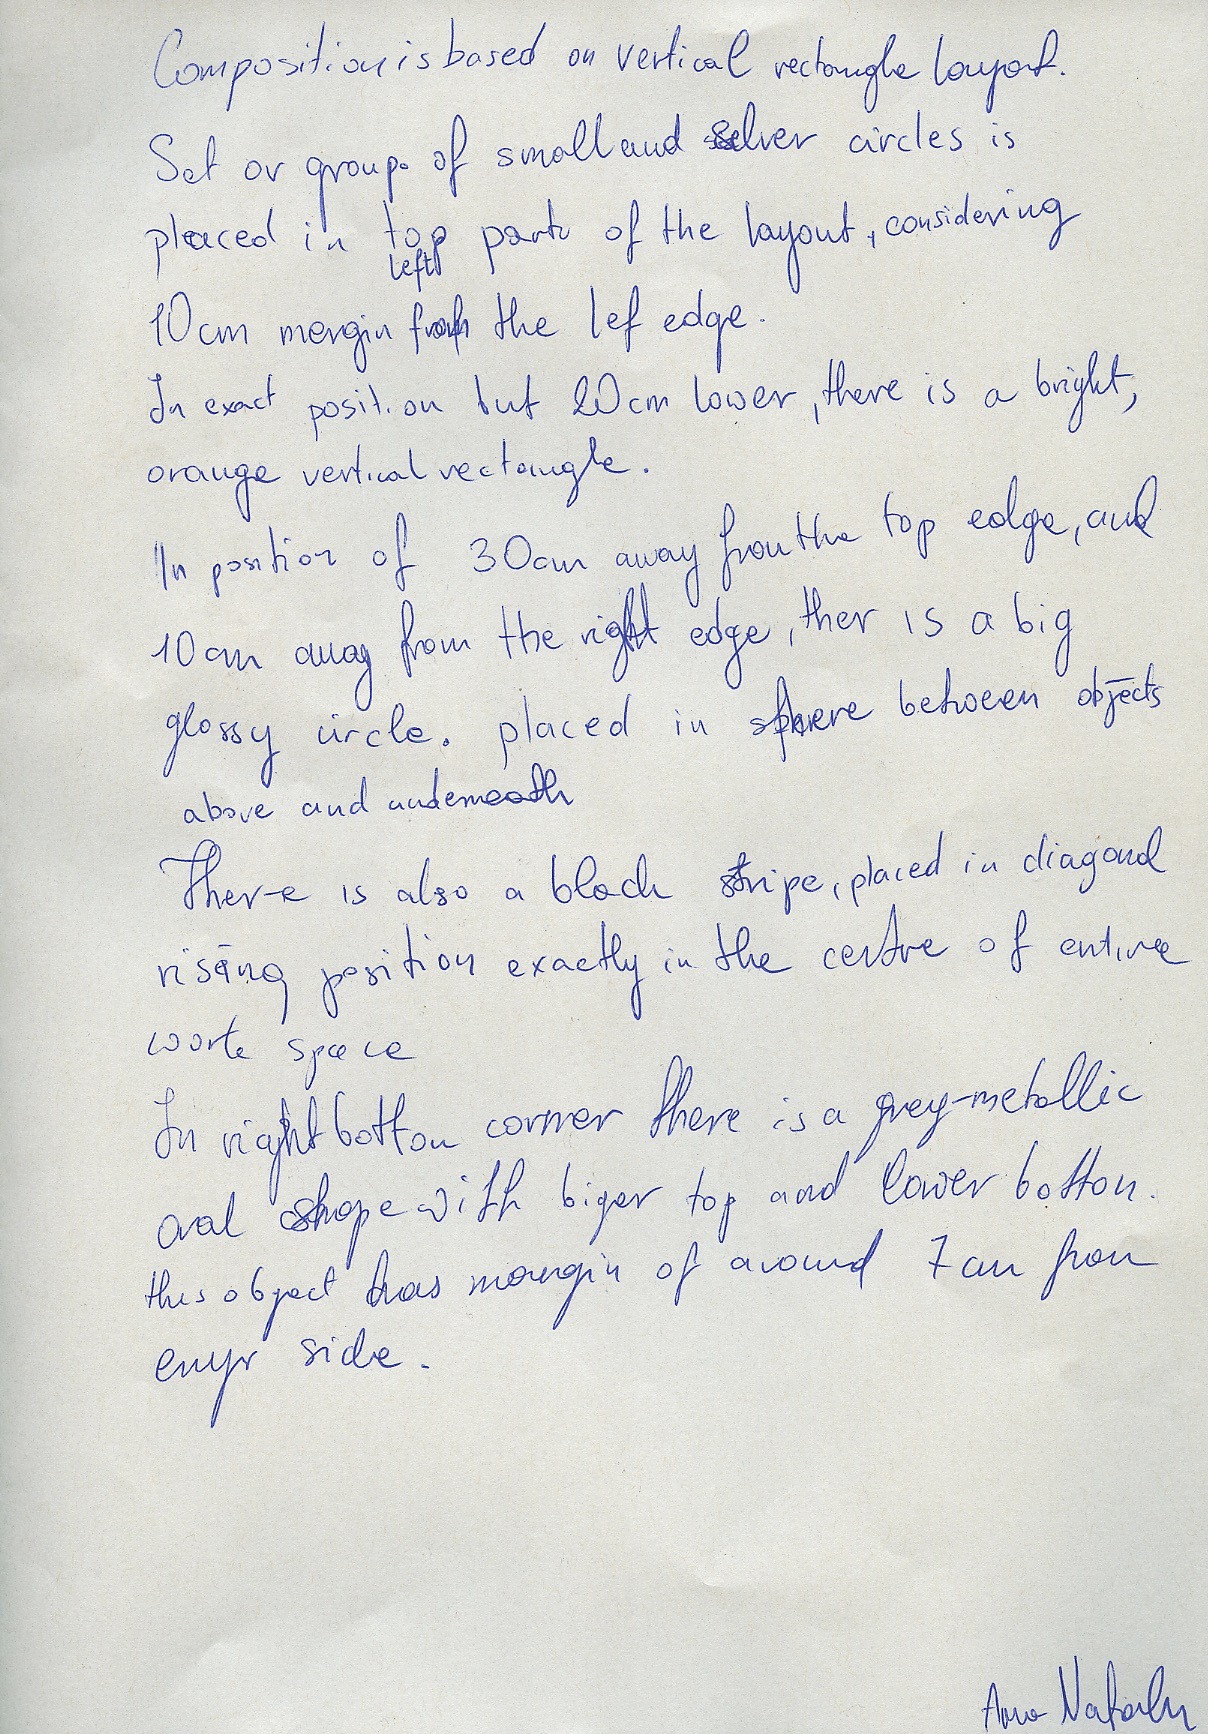 Composition is based on vertical rectangle layout.
Set or group of small and silver circles is
placed in top part of the layout, considering
left
10cm mergin from the lef edge.
In exact position but 20cm lower, there is a bright,
orange vertical rectangle.
In position of 30cm away from the top edge, and
10cm away from the right edge, ther is a big
glossy circle. placed in sphere between objects
above and underneath
There is also a black stripe, placed in diagonal
rising position exactly in the centre of entire
work space
In right bottom corner there is a grey-metallic
oval shape with biger top and lower bottom.
this object has margin of around 7cm from
side.